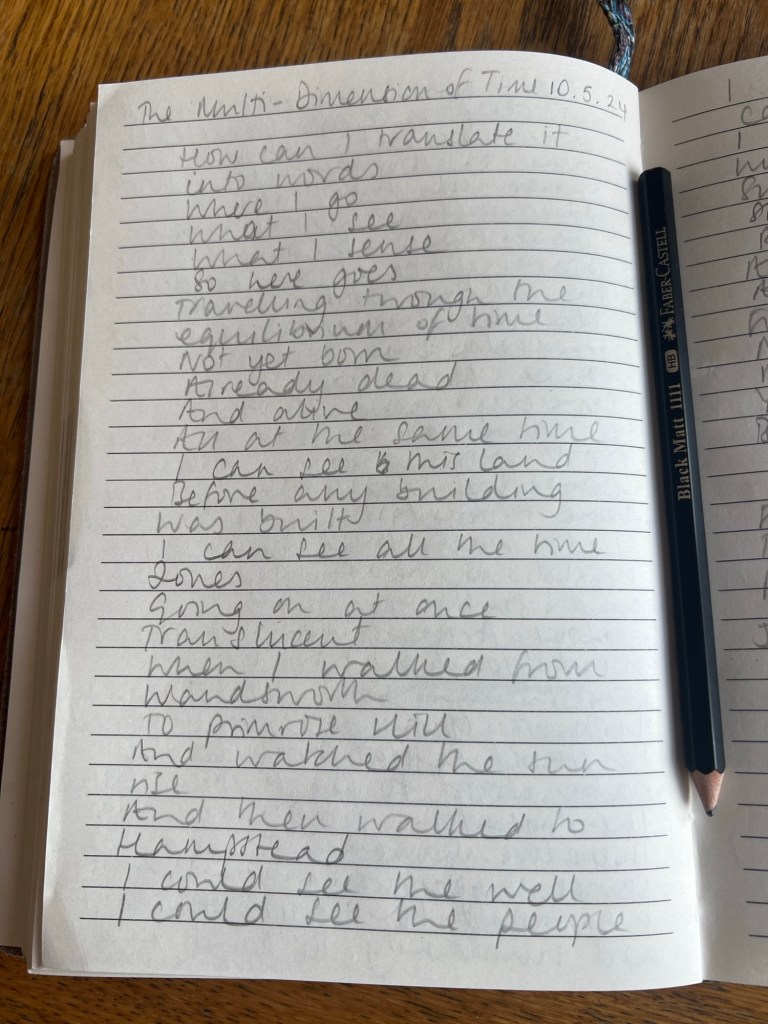 The Multi-Dimension of Time 10.5.24
How can I translate it
into words
Where I go
What I see
What I sense
So here goes
Travelling through the
equilibrium of time
Not yet born
Already dead
And alive
All at the same time
I can see this land
Before any building
was built
I can see all the time
Zones
Going on at once
Translucent
When I walked from
Wandsworth
To Primrose Hill
And watched the sun
rise
And then walked to
Hampstead
I could see the well
I could see the people
Black Matt 1111 HB FABER-CASTELL